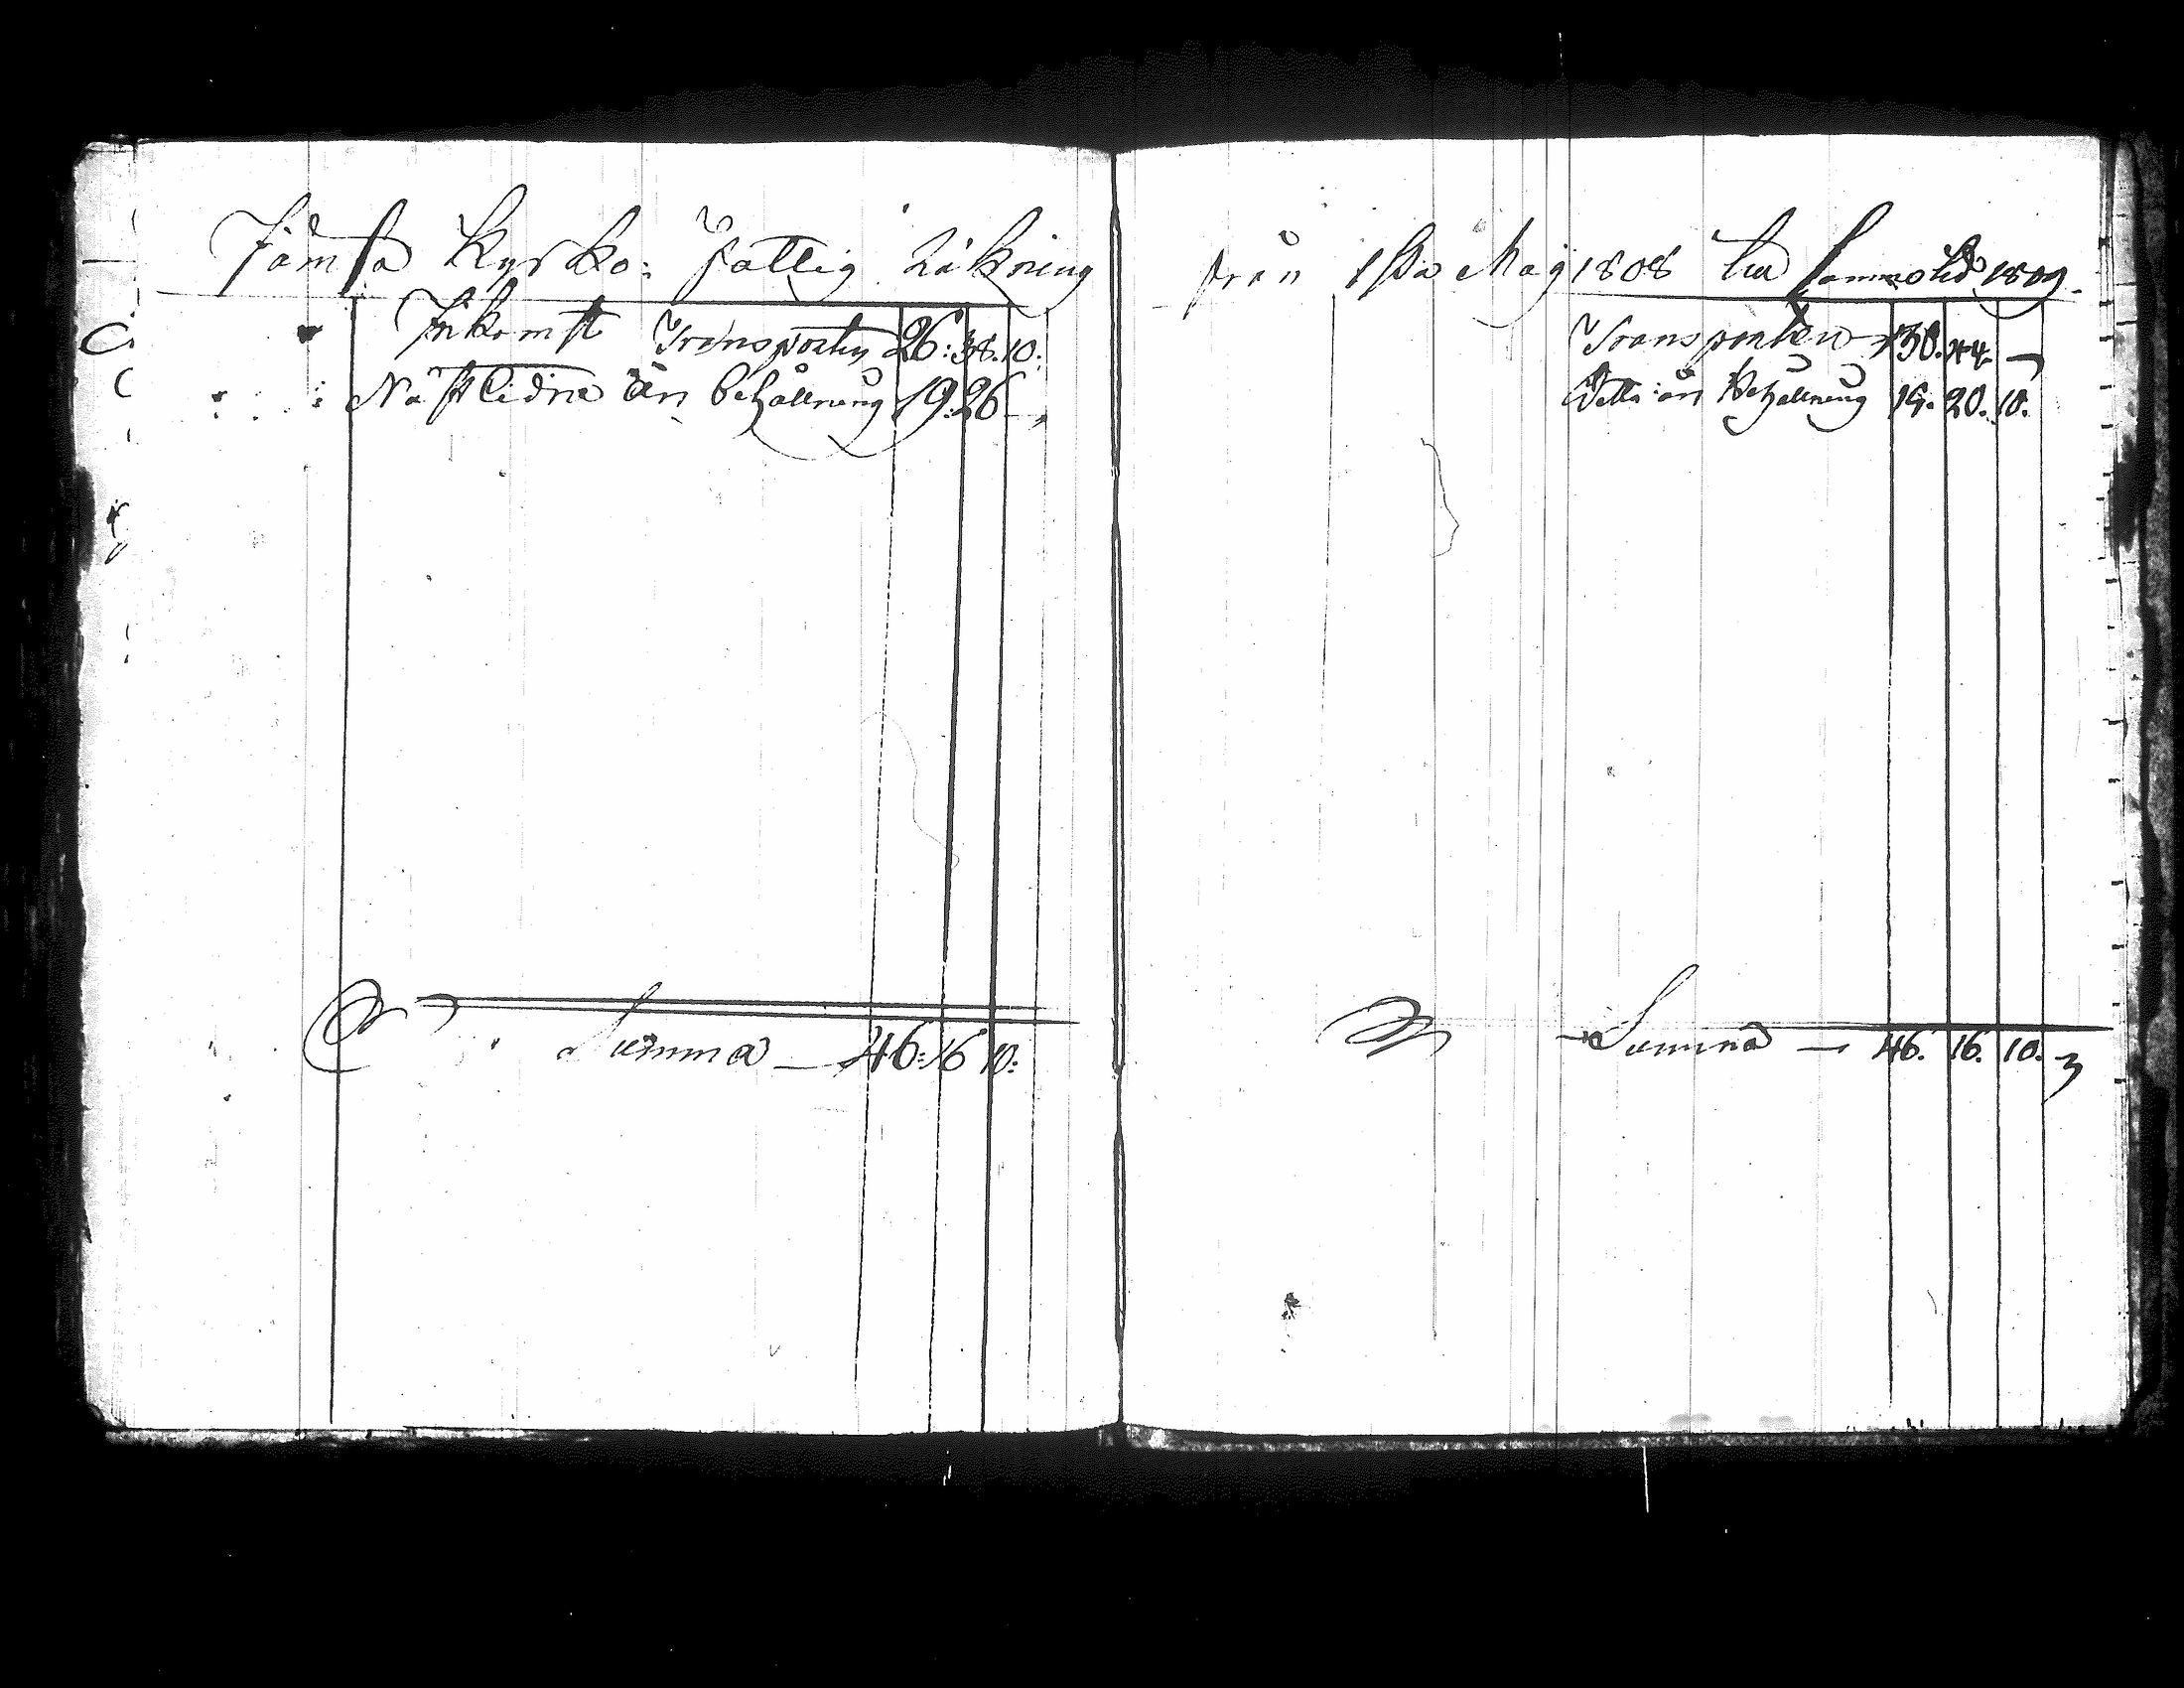 Jämsä Kyrko: fattig Räkning
Inkomst Transporten 26: 38. 10:
Nästledne års behållning 19: 26 —
Summa — 46: 16 10:
från 1sta Maij 1808 till samma tid 1809.
Transporten 44. —
Detta års Behållning 15. 20. 10.
Summa — 46. 16. 10.